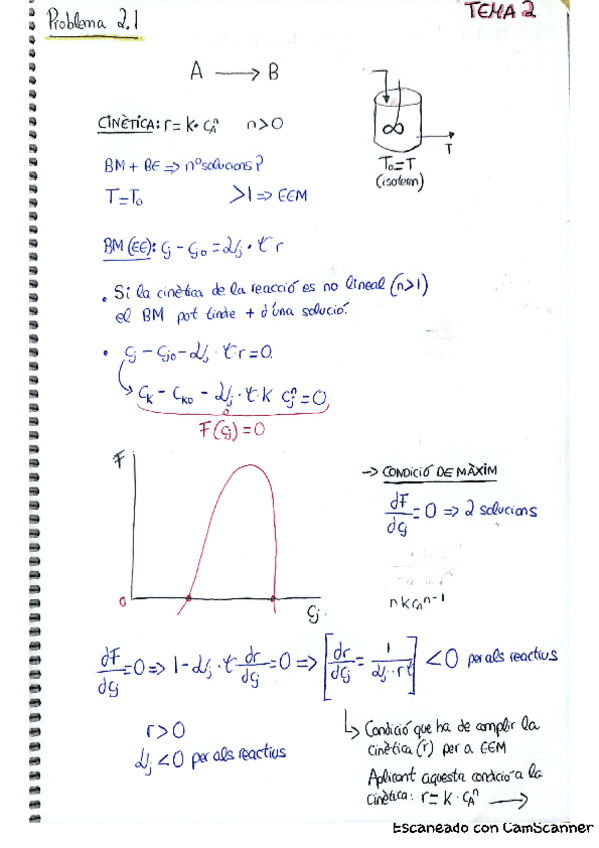 Problema 2.1
TEMA 2
A → B
CINÈTICA: r = k · C_A^n   n>0
T
T₀=T
(isoterm)
BM + BE => nº solucions?
T=T₀   >1 => EEM
BM (EE): Cj - Cj₀ = νj · τ r
• Si la cinètica de la reacció es no lineal (n>1)
el BM pot tindre + d'una solució.
• Cj - Cj₀ - νj · τ · r = 0.
Ck - Ck₀ - νj · τ · k Cj^n = 0
F(Cj) = 0
F
→ CONDICIÓ DE MÀXIM
dF/dCj = 0 => 2 solucions
n k C_A^n-1
0
Cj.
dF/dCj = 0 => 1 - νj · τ dr/dCj = 0 => [dr/dCj = 1/νj · τ] < 0 per als reactius
r > 0
νj < 0 per als reactius
↳ Condició que ha de complir la
cinètica (r) per a EEM
Aplicant aquesta condició a la
cinètica: r = k · C_A^n →
Escaneado con CamScanner